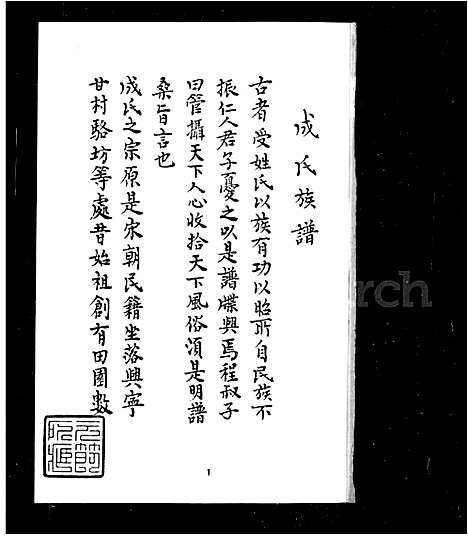 成氏族譜
古者受姓氏以族有功以昭所自民族不
振仁人君子憂之以是譜牒興焉程叔子
曰管攝天下人心收拾天下風俗須是明譜
桑旨言也
成氏之宗原是宋朝民籍坐落興寧
甘村駱坊等處昔始祖創有田園數
1